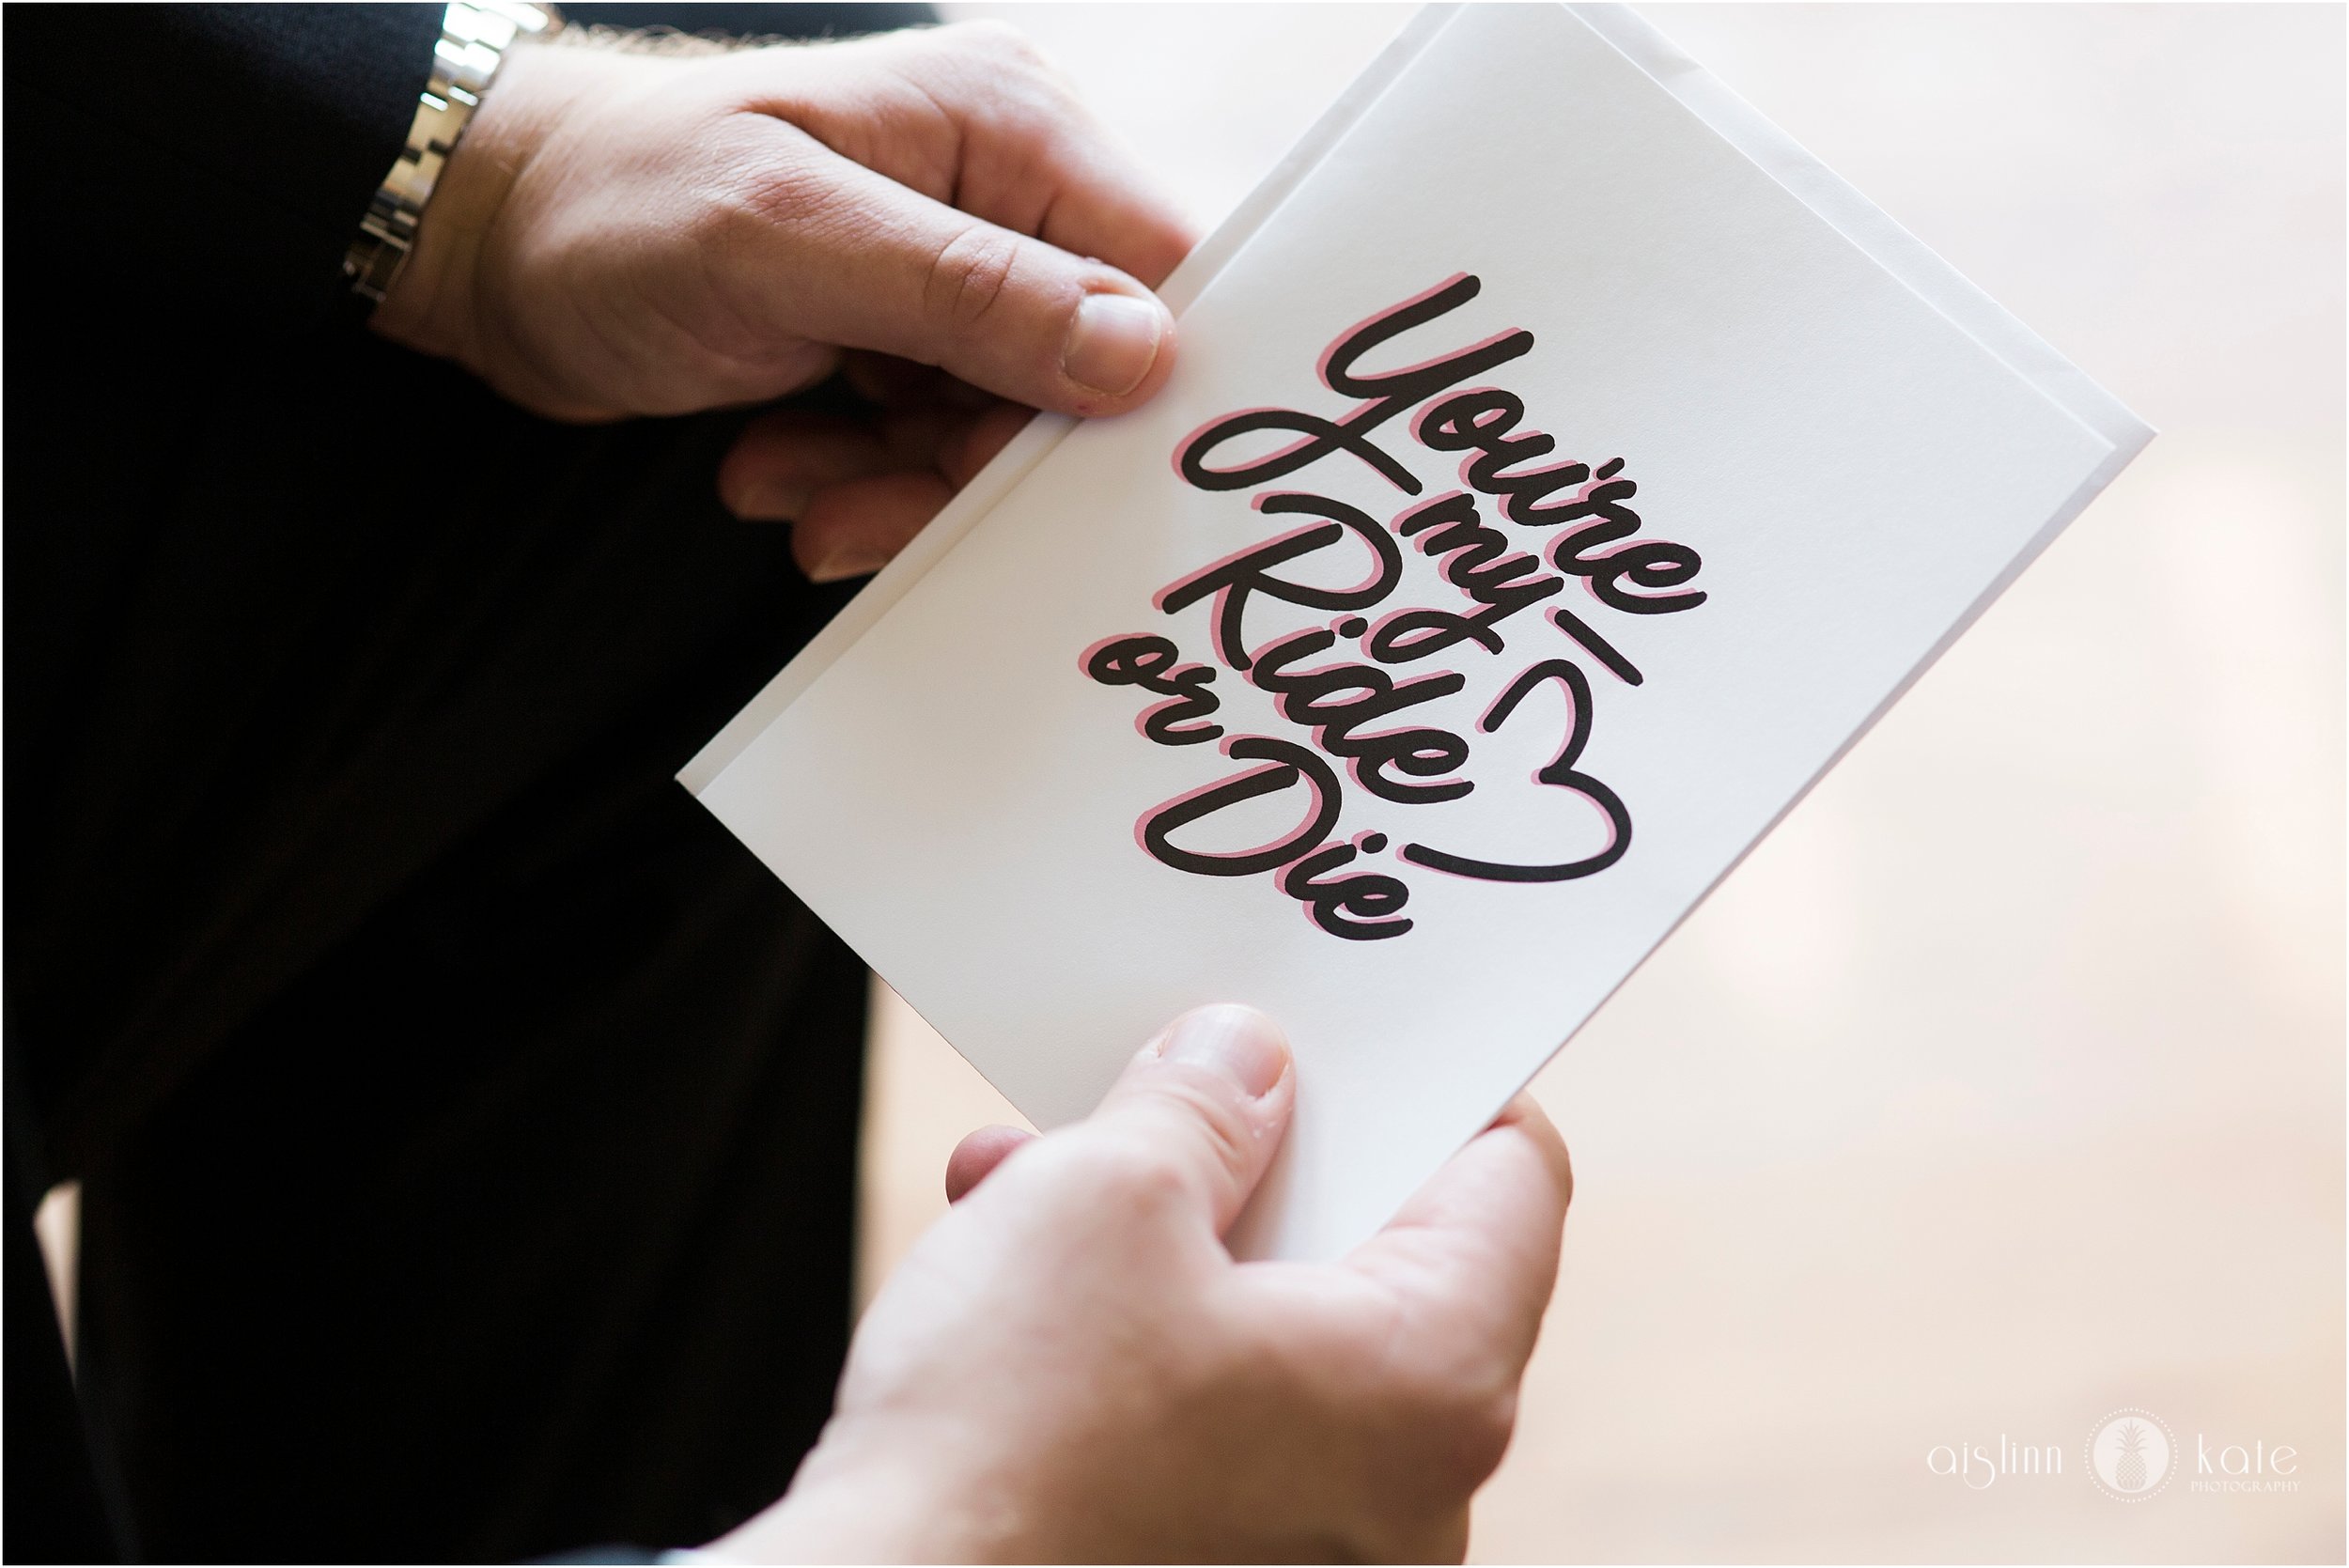 You're
my
Ride
or
Die
aislinn kate
PHOTOGRAPHY